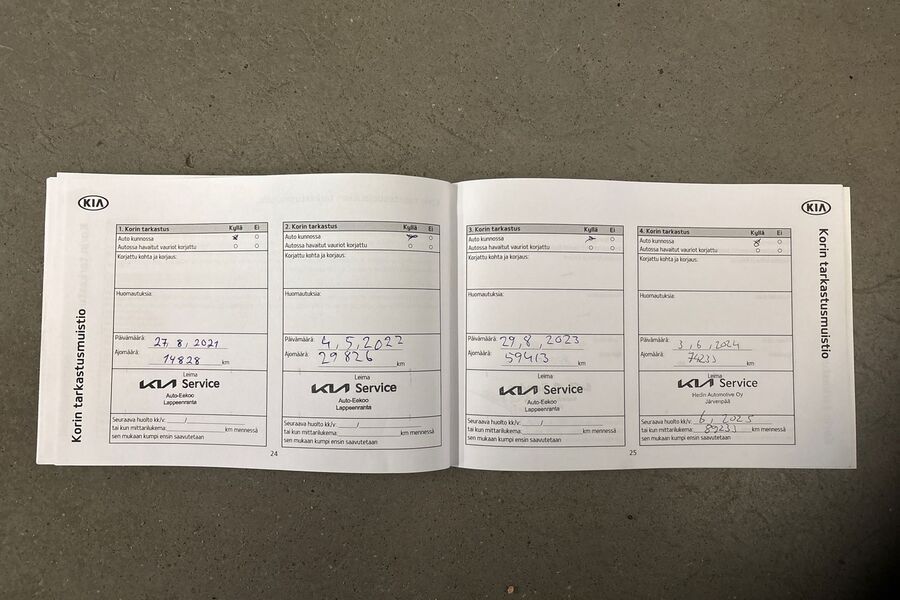 KIA
Korin tarkastusmuistio
1. Korin tarkastus Kyllä Ei
Auto kunnossa
Autossa havaitut vauriot korjattu
Korjattu kohta ja korjaus:
Huomautuksia:
Päivämäärä: 27, 8, 2021
Ajomäärä: 14828 km
Leima
KIA Service
Auto-Eekoo
Lappeenranta
Seuraava huolto kk/v: /
tai kun mittarilukema: km mennessä
sen mukaan kumpi ensin saavutetaan
2. Korin tarkastus Kyllä Ei
Auto kunnossa
Autossa havaitut vauriot korjattu
Korjattu kohta ja korjaus:
Huomautuksia:
Päivämäärä: 4, 5, 2022
Ajomäärä: 29826 km
Leima
KIA Service
Auto-Eekoo
Lappeenranta
Seuraava huolto kk/v: /
tai kun mittarilukema: km mennessä
sen mukaan kumpi ensin saavutetaan
24
3. Korin tarkastus Kyllä Ei
Auto kunnossa
Autossa havaitut vauriot korjattu
Korjattu kohta ja korjaus:
Huomautuksia:
Päivämäärä: 29, 8, 2023
Ajomäärä: 59413 km
Leima
KIA Service
Auto-Eekoo
Lappeenranta
Seuraava huolto kk/v: /
tai kun mittarilukema: km mennessä
sen mukaan kumpi ensin saavutetaan
4. Korin tarkastus Kyllä Ei
Auto kunnossa
Autossa havaitut vauriot korjattu
Korjattu kohta ja korjaus:
Huomautuksia:
Päivämäärä: 3, 6, 2024
Ajomäärä: 74233 km
Leima
KIA Service
Hedin Automotive Oy
Järvenpää
Seuraava huolto kk/v: 6, 2025
tai kun mittarilukema: 89233 km mennessä
sen mukaan kumpi ensin saavutetaan
25
KIA
Korin tarkastusmuistio